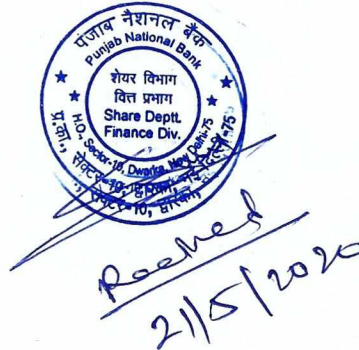 पंजाब नैशनल बैंक
Punjab National Bank
शेयर विभाग
वित्त प्रभाग
Share Deptt.
Finance Div.
H.O., Sector-10, Dwarka, New Delhi-75
प्र.का., सेक्टर-10, द्वारका,
21/5/2020